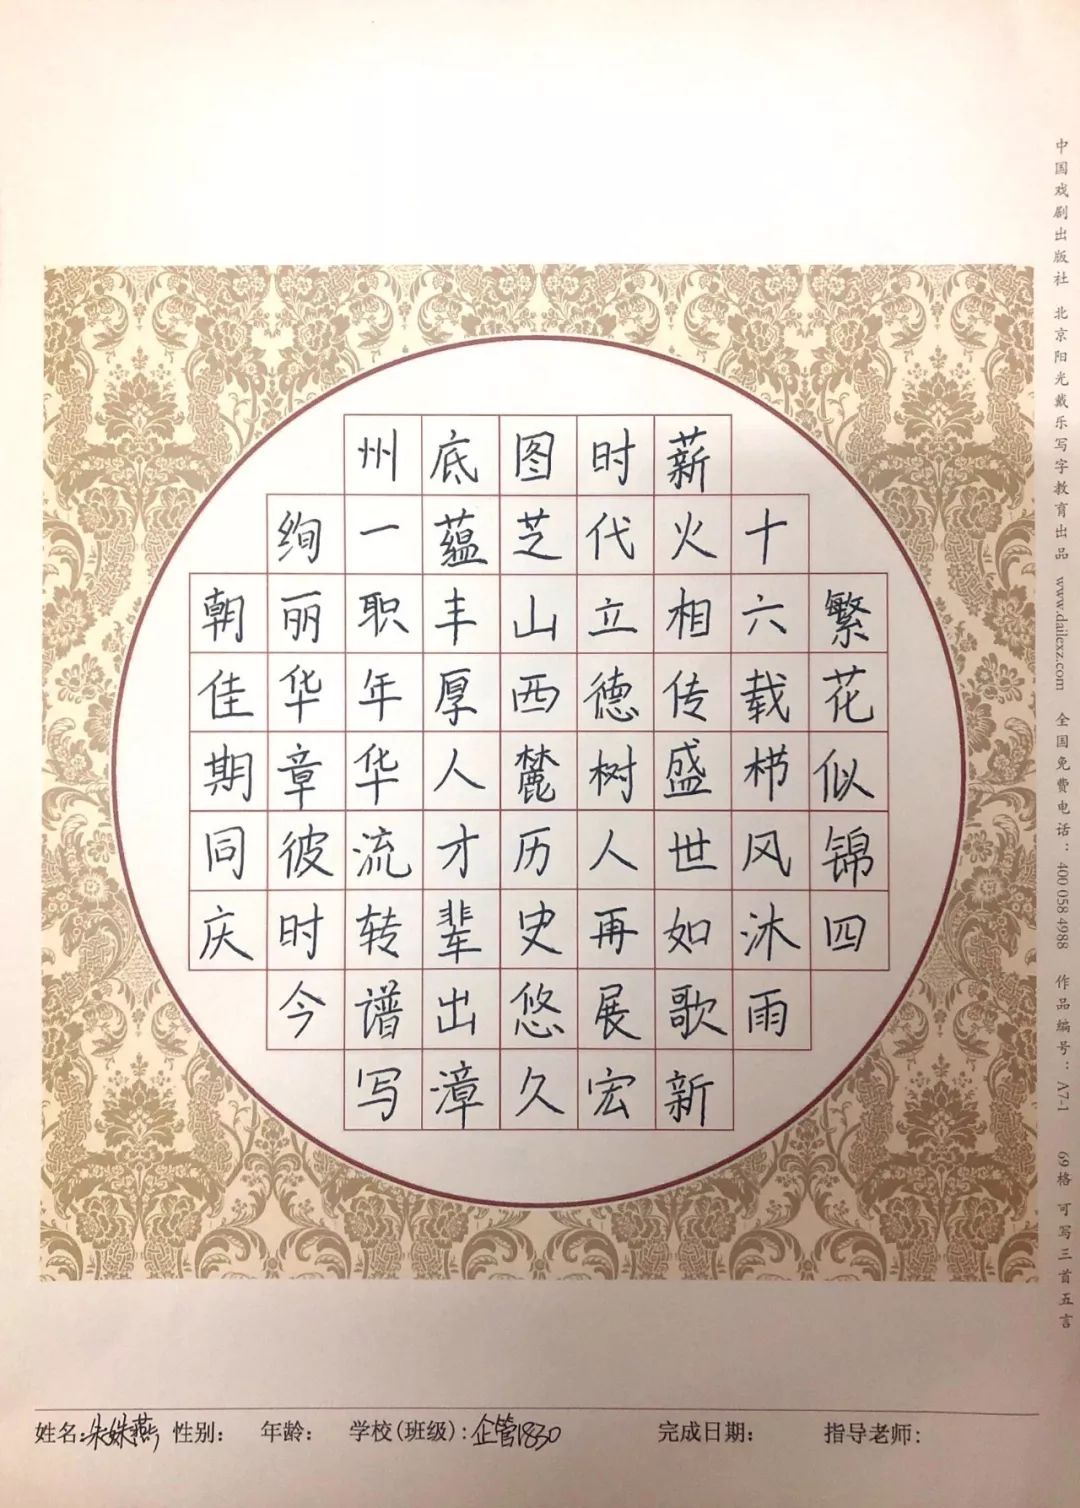 繁花似锦四
十六载栉风沐雨
薪火相传盛世如歌新
时代立德树人再展宏
图芝山西麓历史悠久
底蕴丰厚人才辈出漳
州一职年华流转谱写
绚丽华章彼时今
朝佳期同庆
中国戏剧出版社 北京阳光戴乐写字教育出品 www.dailexz.com 全国免费电话：400 058 4988 作品编号：A7-1 69格 可写三首五言
姓名：朱姝燕 性别： 年龄： 学校(班级)：企管1830 完成日期： 指导老师：